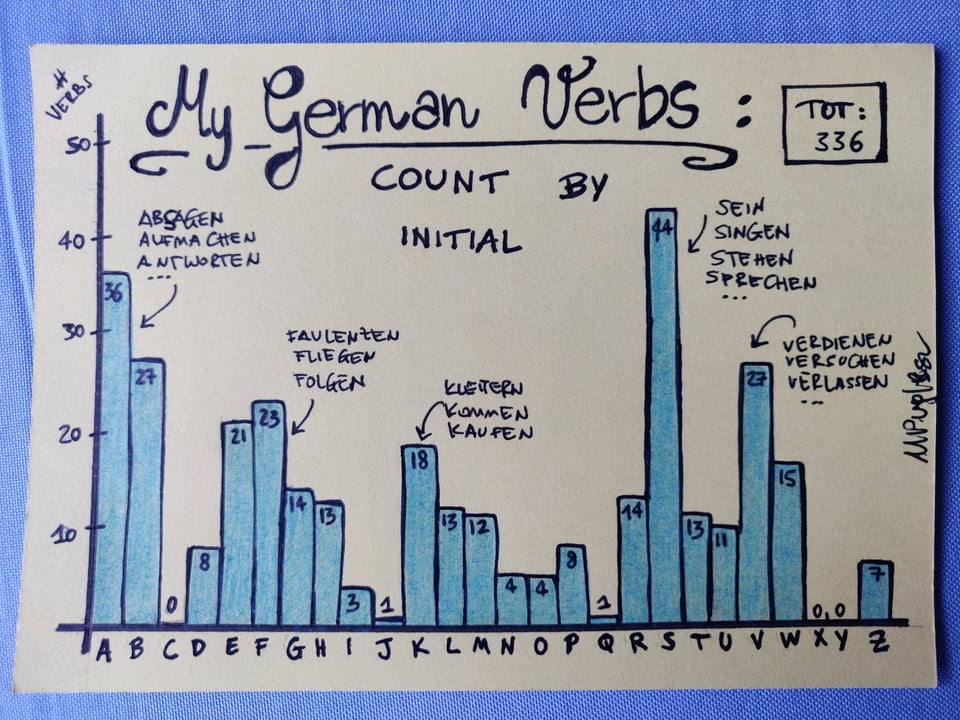 My German Verbs:
TOT:
336
COUNT BY
INITIAL
# VERBS
50
40
30
20
10
ABSAGEN
AUFMACHEN
ANTWORTEN
...
FAULENZEN
FLIEGEN
FOLGEN
KLETTERN
KOMMEN
KAUFEN
SEIN
SINGEN
STEHEN
SPRECHEN
...
VERDIENEN
VERSUCHEN
VERLASSEN
...
36 27 0 8 21 23 14 13 3 1 18 13 12 4 4 8 1 14 44 13 11 27 15 0,0 7
A B C D E F G H I J K L M N O P Q R S T U V W X Y Z